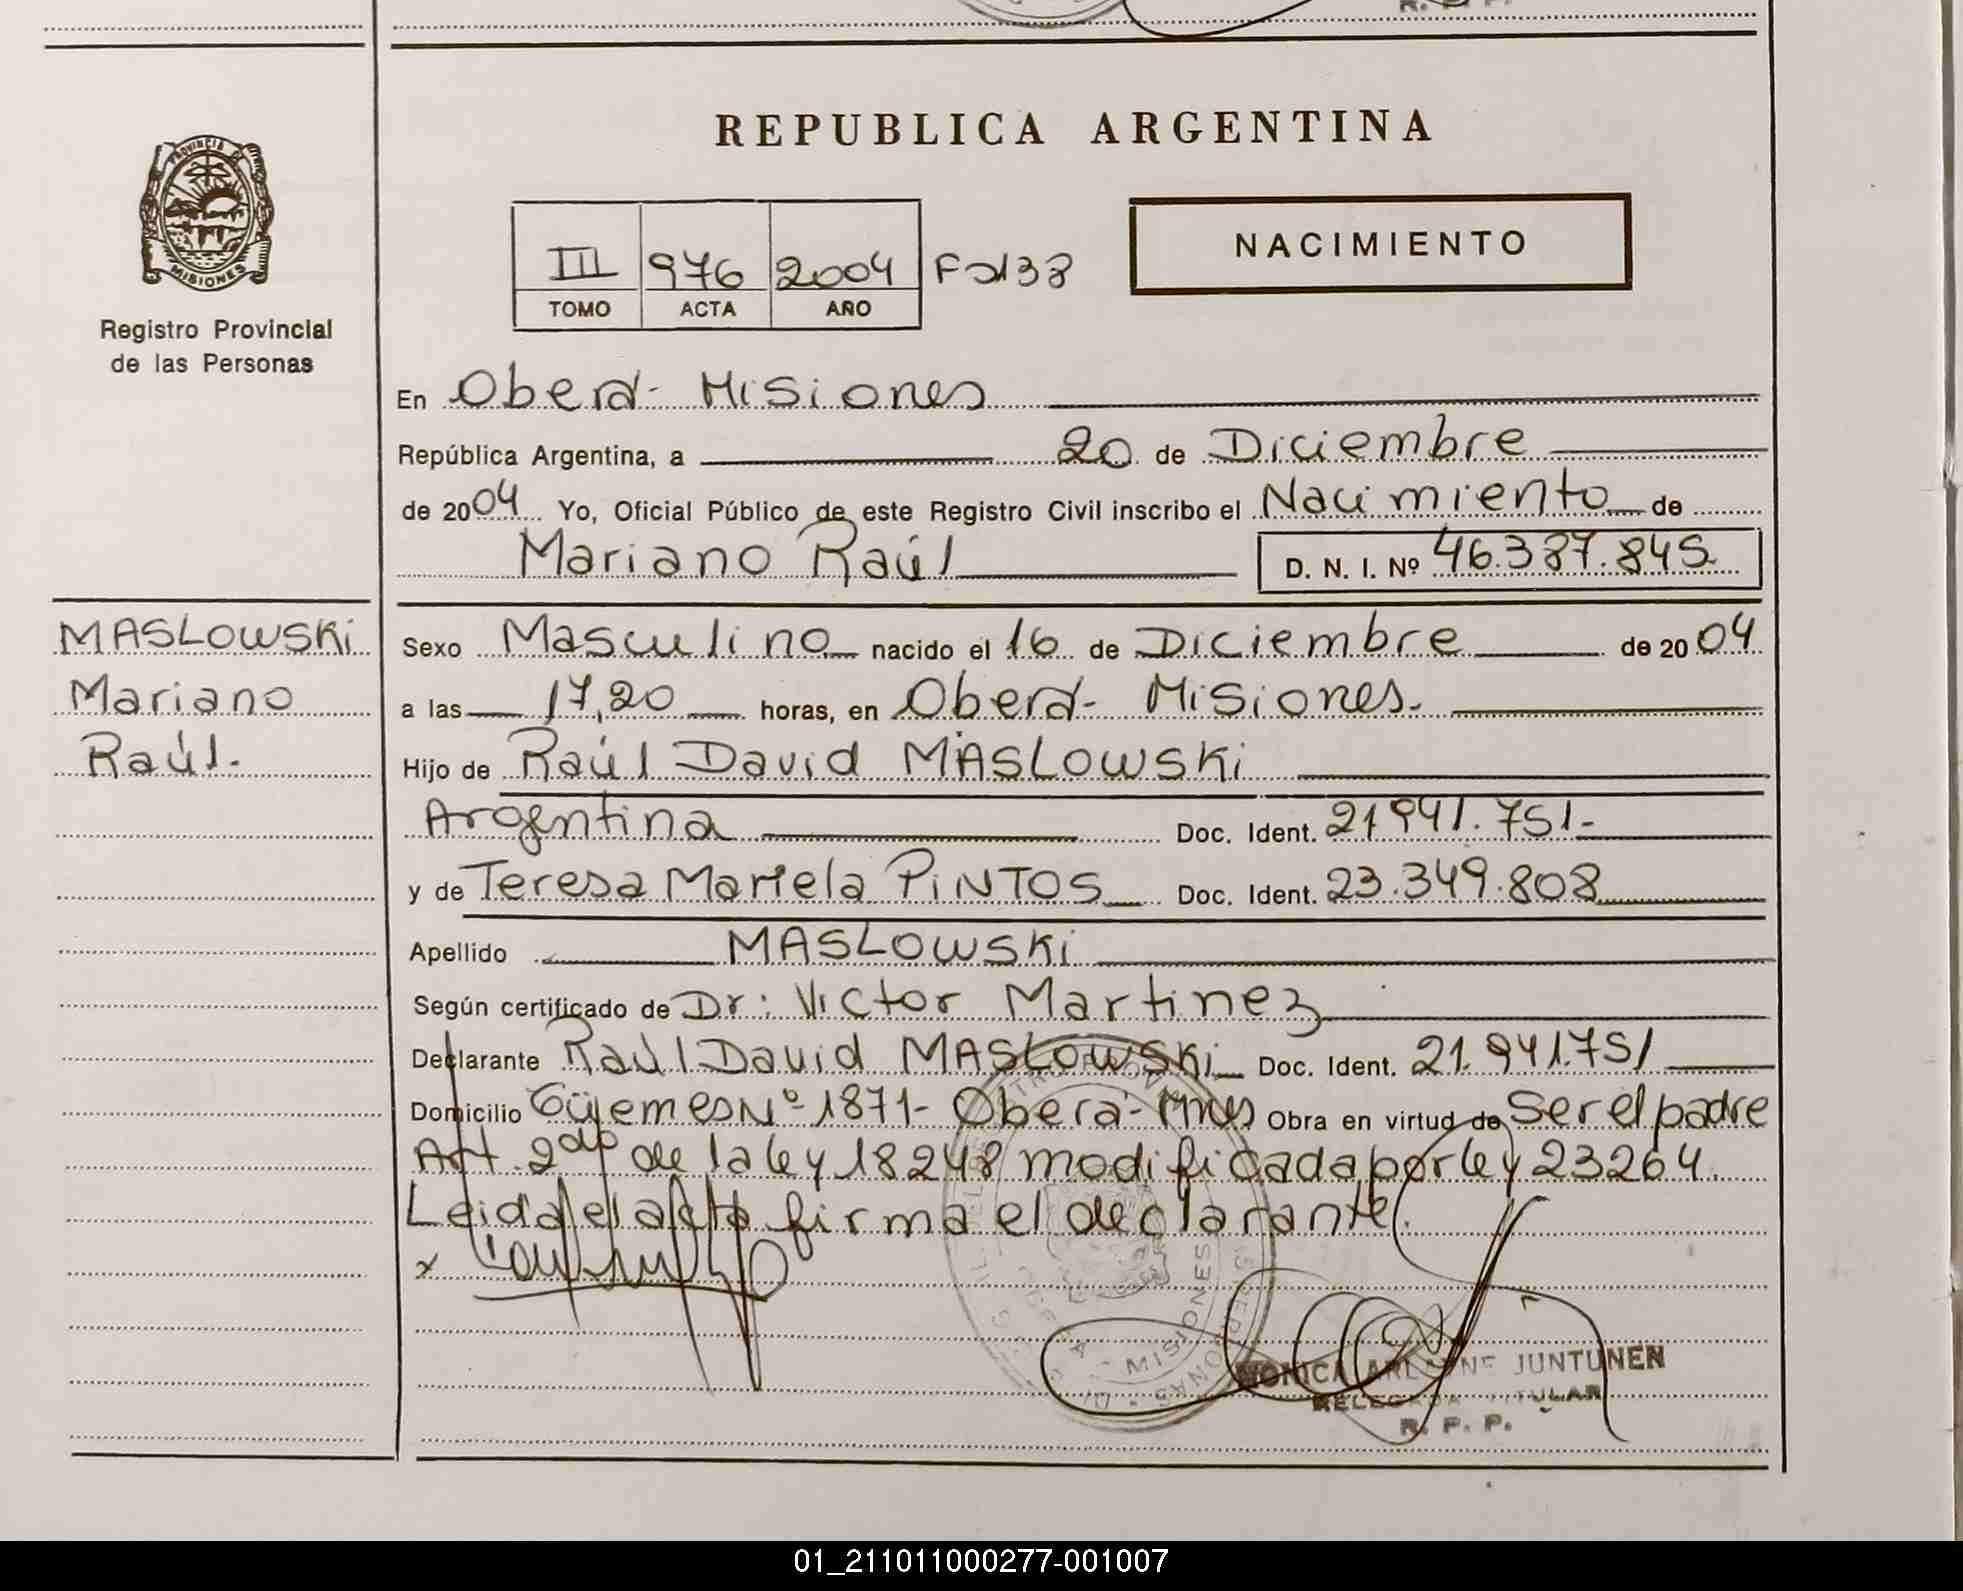 R. P. P.
REPUBLICA ARGENTINA
PROVINCIA DE
MISIONES
III 976 2004 Fº138
TOMO ACTA AÑO
NACIMIENTO
Registro Provincial
de las Personas
En Oberá - Misiones
República Argentina, a 20 de Diciembre
de 2004 Yo, Oficial Público de este Registro Civil inscribo el Nacimiento de
Mariano Raúl D. N. I. Nº 46.387.845
MASLOWSKi
Mariano
Raúl.
Sexo Masculino nacido el 16 de Diciembre de 2004
a las 17,20 horas, en Oberá - Misiones.
Hijo de Raúl David MASLOWSKi
Argentina Doc. Ident. 21.941.751-
y de Teresa Mariela PiNTOS Doc. Ident. 23.349.808
Apellido MASLOWSKi
Según certificado de Dr: Victor Martinez
Declarante Raúl David MASLOWSKi Doc. Ident. 21.941.751
Domicilio Güemes Nº 1871- Oberá - Mnes Obra en virtud de Ser el padre
Art. 2do de la ley 18248 modificada por ley 23264.
Leida el acta firma el declarante.
x
MISIONES
MONICA ARLENNE JUNTUNEN
DELEGADA TITULAR
R. P. P.
01_211011000277-001007